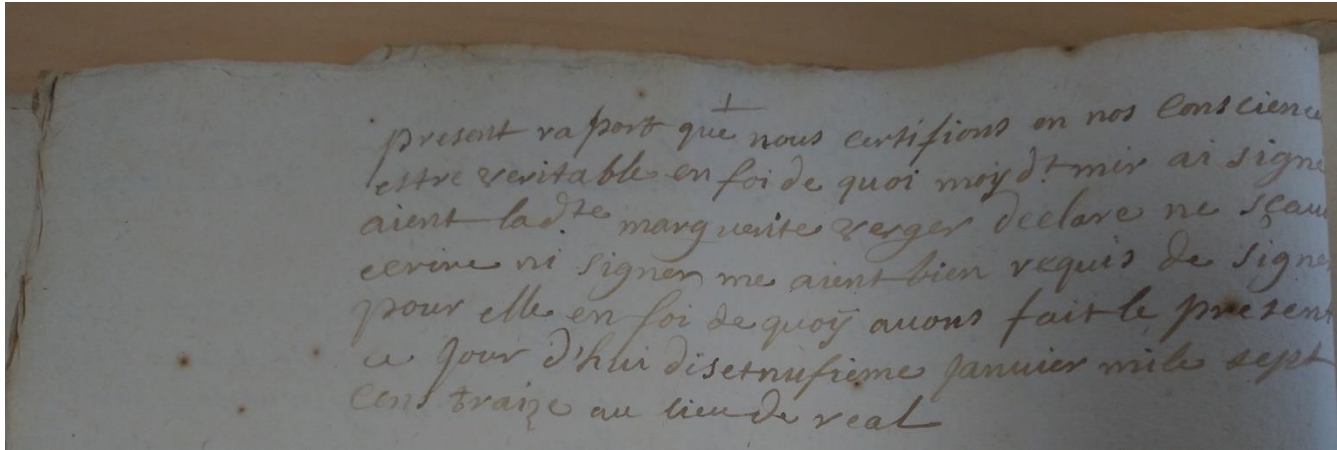 present raport que nous certifions en nos conscience
estre veritable en foi de quoi moy dt mir ai signe
aient ladte marguerite verger declare ne sçau
ecrire ni signer me aient bien requis de signer
pour elle en foi de quoÿ auons fait le present
ce jour d'hui disetnufieme januier mile sept
cens traize au lieu de real